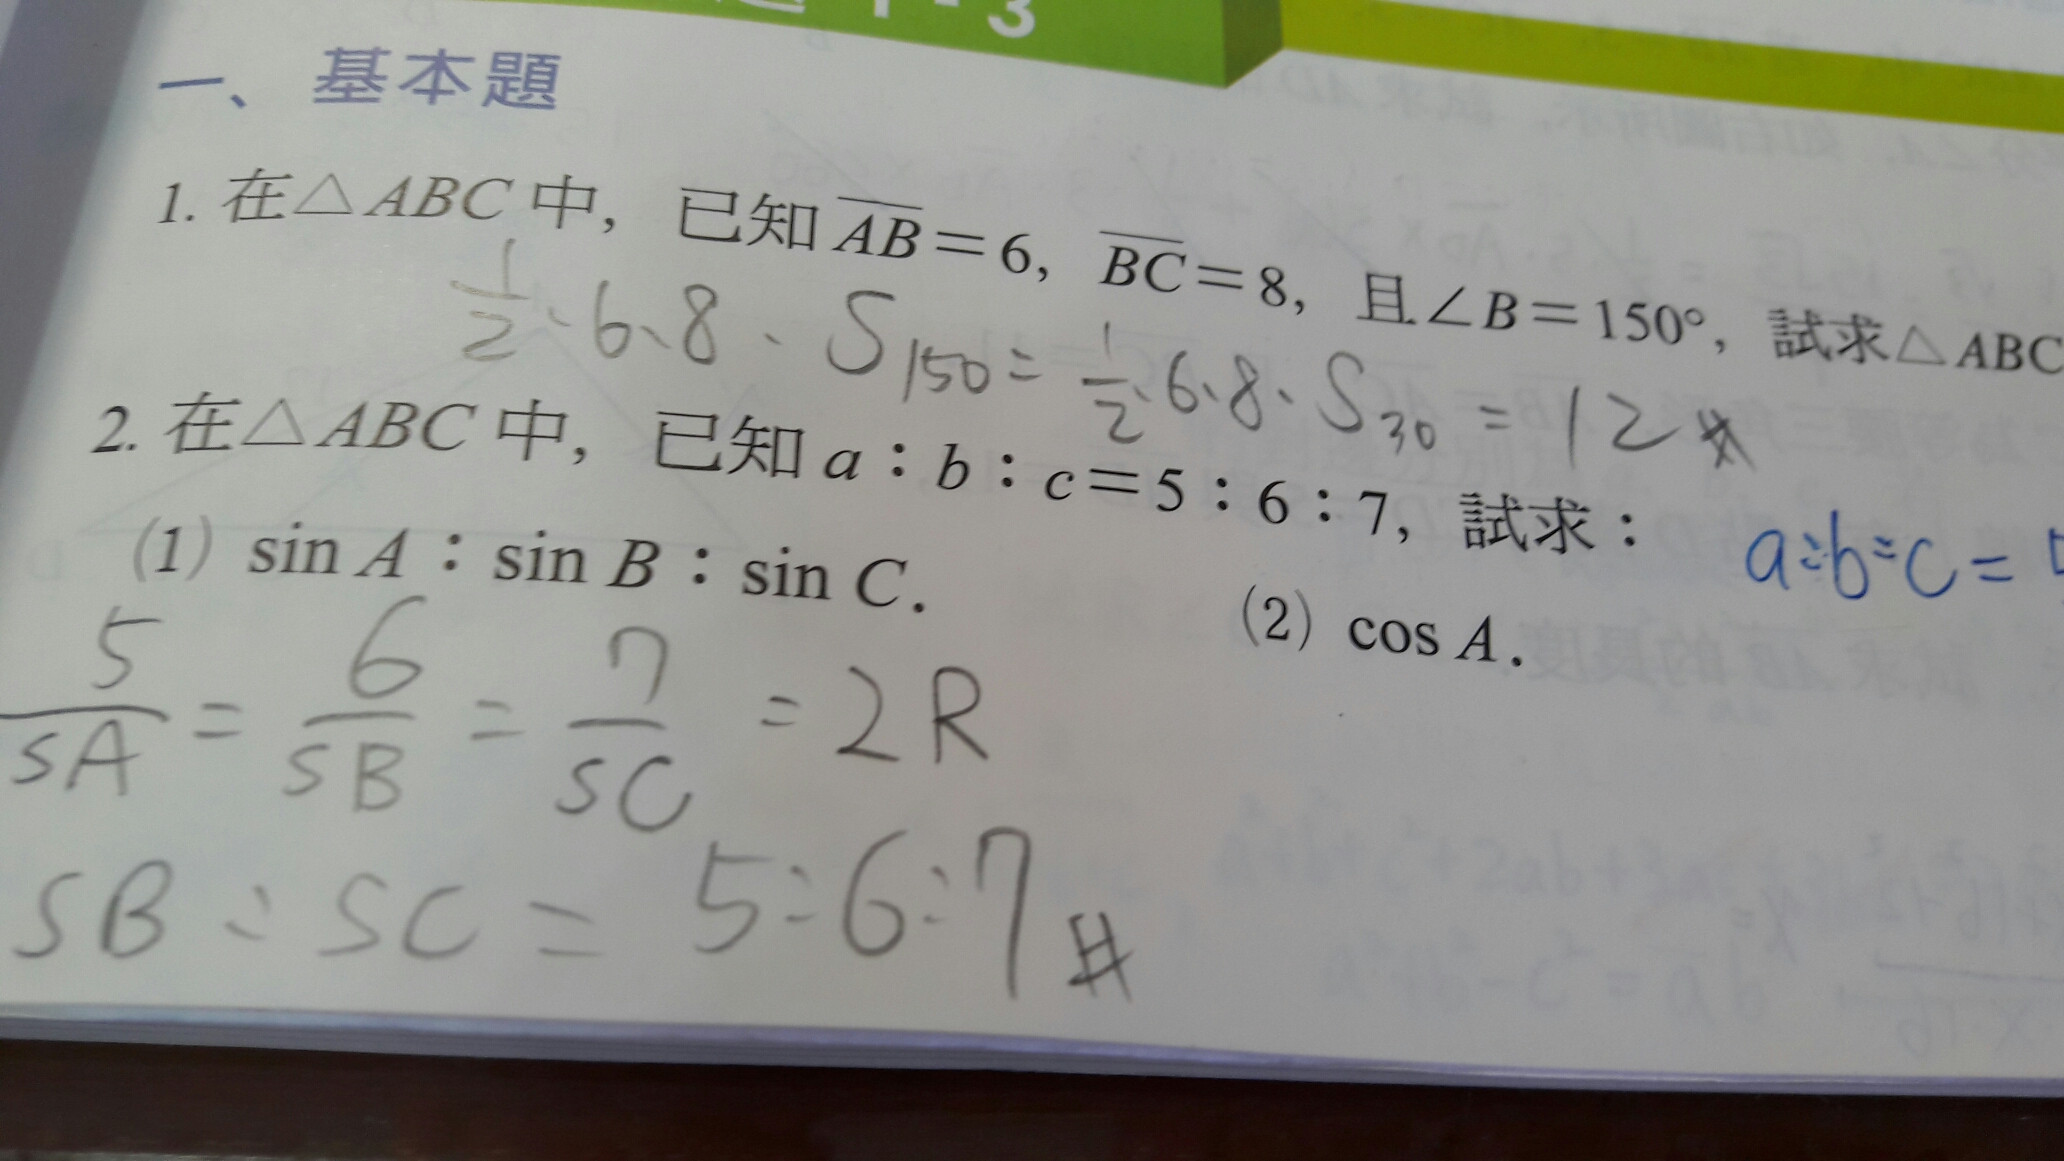 1-3
一、基本題
1. 在△ABC 中，已知 AB=6，BC=8，且∠B=150°，試求△ABC
1/2·6·8·S150=1/2·6·8·S30=12#
2. 在△ABC 中，已知 a：b：c=5：6：7，試求：
a:b:c=
(1) sin A：sin B：sin C.
(2) cos A.
5/SA = 6/SB = 7/SC = 2R
SB : SC = 5:6:7#